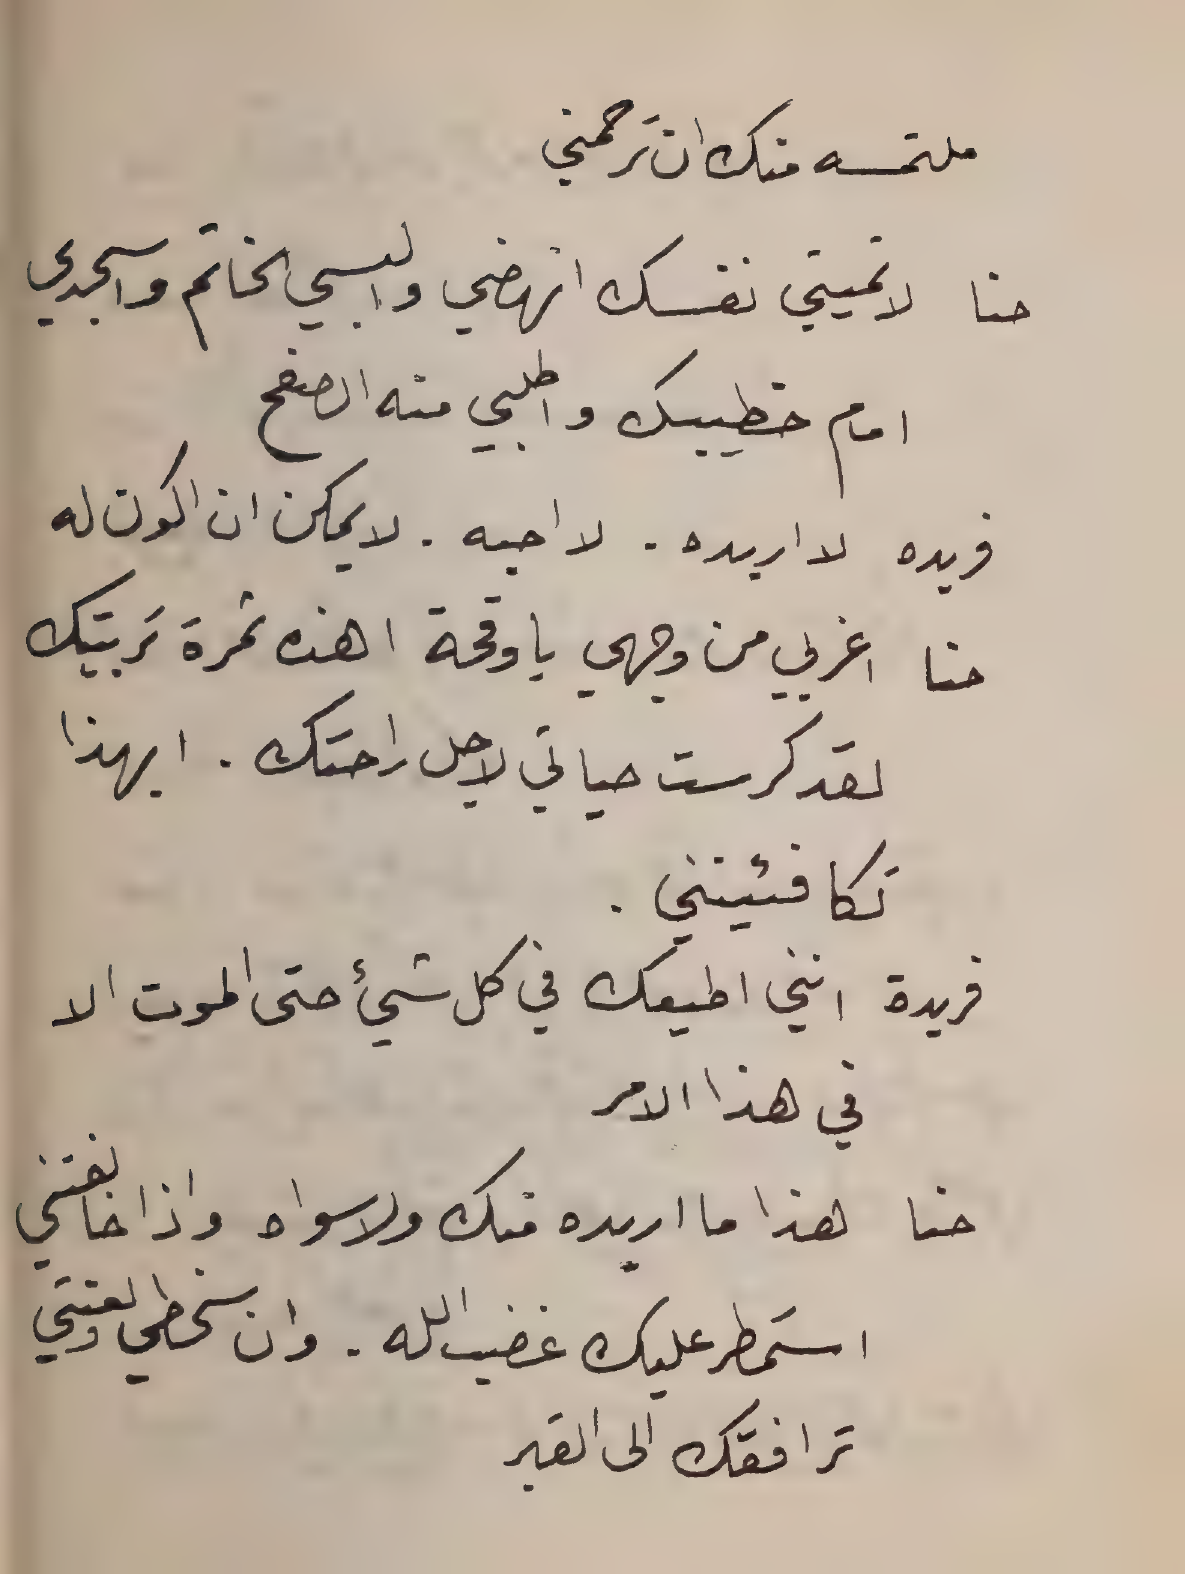 ملتمسه منك ان ترحمني
حنا لا تميتي نفسك انهضي والبسي الخاتم واسجدي
امام خطيبك واطلبي منه الصفح
فريده لا اريده . لا احبه . لا يمكن ان اكون له
حنا اغربي من وجهي يا وقحة اهذه ثمرة تربيتك
لقد كرست حياتي لاجل راحتك . ابهذا
تكافئينني .
فريدة انني اطيعك في كل شيئ حتى الموت الا
في هذا الامر
حنا هذا ما اريده منك ولا سواه واذا خالفتني
استمطر عليك غضب الله . وان سخطي ولعنتي
ترافقك الى القبر